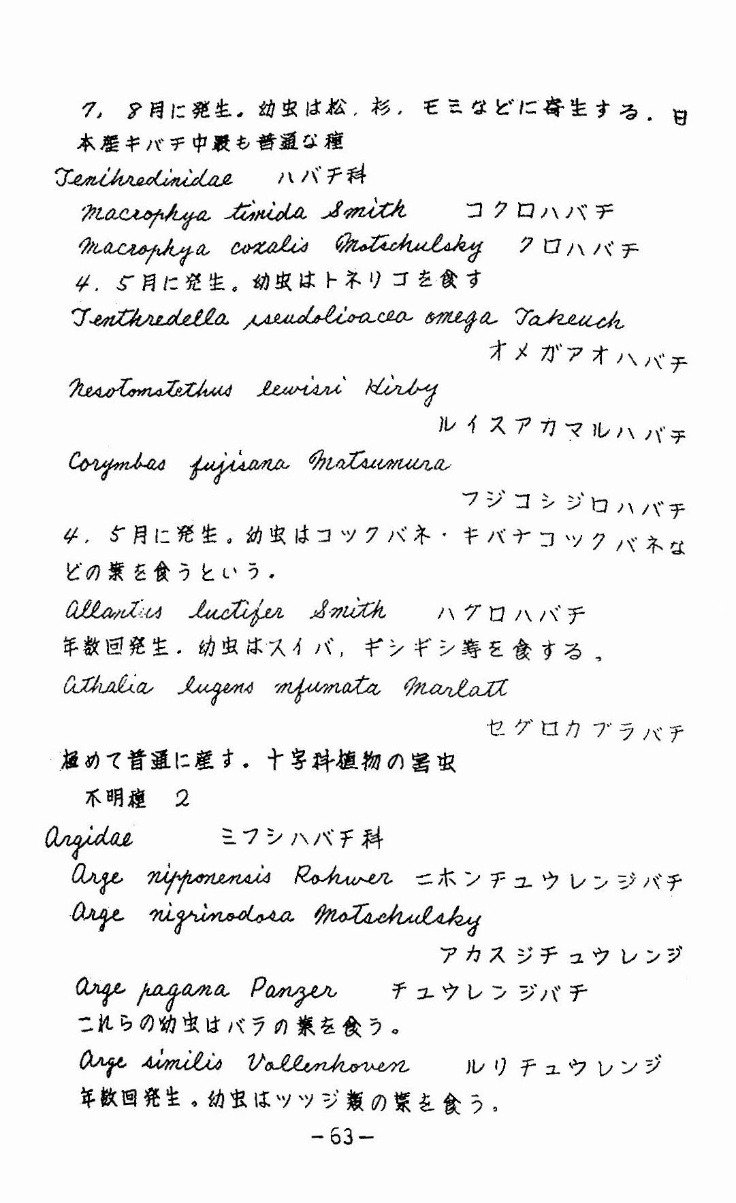 7, 8月に発生。幼虫は松, 杉, モミなどに寄生する. 日
本産キバチ中最も普通な種
Tenihredinidae ハバチ科
Macrophya timida Smith コクロハバチ
Macrophya coxalis Motschulsky クロハバチ
4. 5月に発生。幼虫はトネリコを食す
Tenthredella pseudolivacea omega Takeuch
オメガアオハバチ
Nesotomstethus lewisri Kirby
ルイスアカマルハバチ
Corymbas fujisana Matsumura
フジコシジロハバチ
4. 5月に発生。幼虫はコックバネ・キバナコツクバネな
どの葉を食うという.
Allantus luctifer Smith ハグロハバチ
年数回発生. 幼虫はスイバ, ギシギシ等を食する、
Athalia lugens mfumata Marlatt
セグロカブラバチ
極めて普通に産す. 十字科植物の害虫
不明種 2
Argidae ミフシハバチ科
Arge nipponensis Rohwer ニホンチュウレンジバチ
Arge nigrinodosa Motschulsky
アカスジチュウレンジ
Arge pagana Panzer チュウレンジバチ
これらの幼虫はバラの葉を食う。
Arge similis Vollenhoven ルリチュウレンジ
年数回発生。幼虫はツツジ類の葉を食う。
-63-